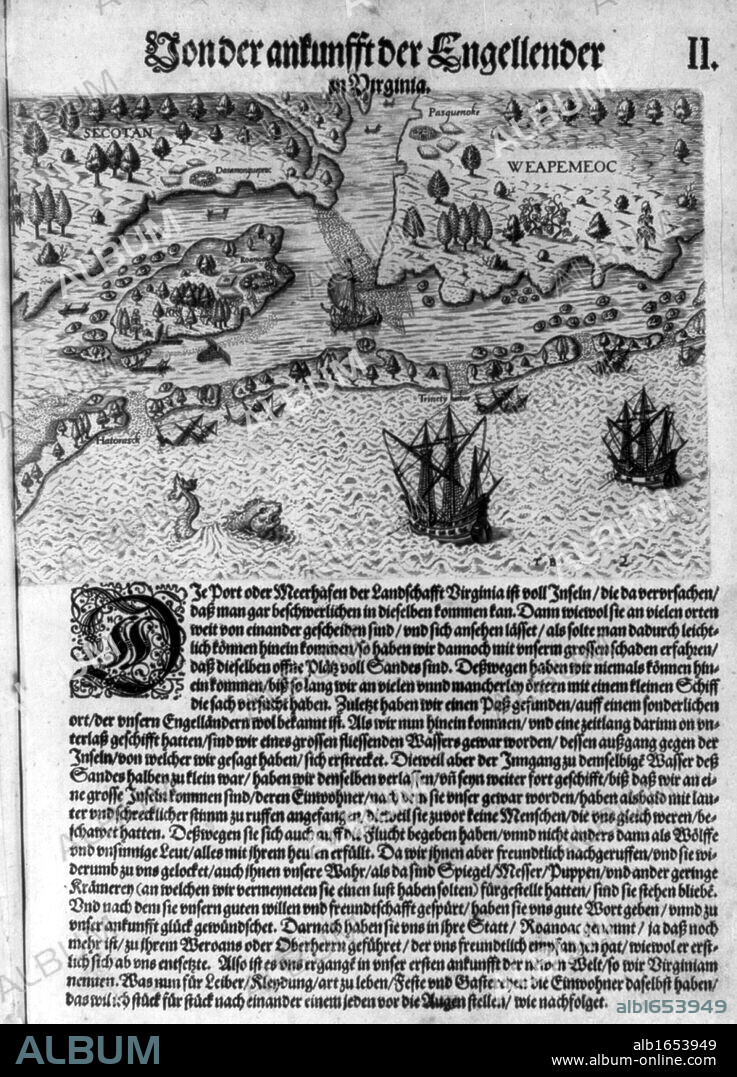 Von der ankunfft der Engellender II.
in Virginia.
SECOTAN
Pasquenoke
WEAPEMEOC
Dasamonquepeuc
Roanoac
Trinety harbor
Hatorasck
T B 2
DIe Port oder Meerhäfen der Landschafft Virginia ist voll Inseln / die da vervrsachen /
daß man gar beschwerlichen in dieselben kommen kan. Dann wiewol sie an vielen orten
weit von einander gescheiden sind / vnd sich ansehen lässet / als solte man dadurch leicht-
lich können hinein kommen / so haben wir dannoch mit vnserm grossen schaden erfahren /
daß dieselben offne Plätz voll Sandes sind. Deßwegen haben wir niemals können hin-
ein kommen / biß so lang wir an vielen vnnd mancherley örtern mit einem kleinen Schiff
die sach versucht haben. Zuletzt haben wir einen Paß gefunden / auff einem sonderlichen
ort / der vnsern Engelländern wol bekannt ist. Als wir nun hinein kommen / vnd eine zeitlang darinn on vn-
terlaß geschifft hatten / sind wir eines grossen fliessenden Wassers gewar worden / dessen außgang gegen der
Inseln / von welcher wir gesagt haben / sich erstrecket. Dieweil aber der Inngang zu demselbigē Wasser deß
Sandes halben zu klein war / haben wir denselben verlassen / vñ seyn weiter fort geschifft / biß daß wir an ei-
ne grosse Inseln kommen sind / deren Einwohner / nach dem sie vnser gewar worden / haben alsbald mit lau-
ter vnd schrecklicher stimm zu ruffen angefangen / dieweil sie zuvor keine Menschen / die vns gleich weren / be-
schawet hatten. Deßwegen sie sich auch auff die Flucht begeben haben / vnnd nicht anders dann als Wölffe
vnd vnsinnige Leut / alles mit ihrem heulen erfüllt. Da wir ihnen aber freundtlich nachgeruffen / vnd sie wi-
derumb zu vns gelocket / auch ihnen vnsere Wahr / als da sind Spiegel / Messer / Puppen / vnd ander geringe
Krämerey (an welchen wir vermeyneten sie einen lust haben solten) fürgestellt hatten / sind sie stehen bliebē.
Vnd nach dem sie vnsern guten willen vnd freundtschafft gespürt / haben sie vns gute Wort geben / vnnd zu
vnser ankunfft glück gewündschet. Darnach haben sie vns in ihre Statt / Roanoac genannt / ja daß noch
mehr ist / zu ihrem Weroans oder Oberherrn geführet / der vns freundtlich empfangen hat / wiewol er erst-
lich sich ab vns entsetzte. Also ist es vns ergangē in vnser ersten ankunfft der newen Welt / so wir Virginiam
nennen. Was nun für Leiber / Kleydung / art zu leben / Feste vnd Gastereyen die Einwohner daselbst haben /
das wil ich stück für stück nach einander einem jeden vor die Augen stellen / wie nachfolget.
alb1653949
ALBUM
alb1653949
www.album-online.com